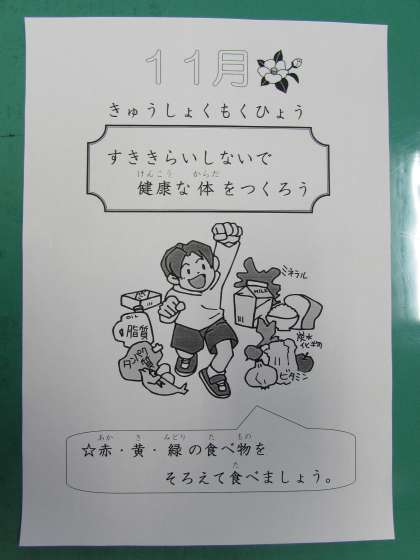 １１月
きゅうしょくもくひょう
すききらいしないで
けんこう からだ
健康な体をつくろう
ミネラル
MILK
OIL
脂質
タンパク質
炭水化物
ビタミン
あか き みどり た もの
☆赤・黄・緑の食べ物を
た
そろえて食べましょう。